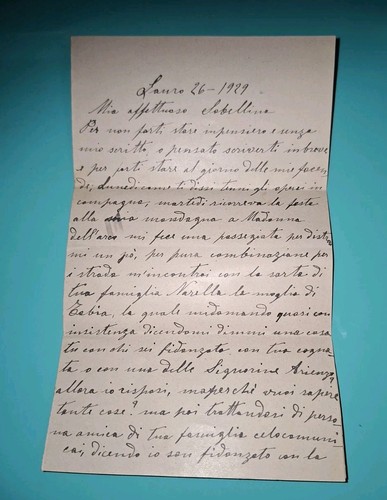 Lauro 26-1929
Mia affettuosa Isabellina
Per non farti stare in pensiero e senza
mio scritto, o pensato scriverti in breve
e per farti stare al giorno delle mie facen
de; Lunedi come ti dissi tenni gli operai in
campagna; martedi ricorreva la festa
alla mia montagna a Madonna
dell'arco mi fice una passegiata per distrar
mi un pò, per pura combinazione per
istrada m'incontrai con la sarta di
tua famiglia Narella la moglie di
Tobia, la quale midomando quasi con
insistenza dicendomi dimmi una cosa
tu con chi sei fidanzato, con tua cogna
ta o con una delle Signorine Arienzo,
allora io risposi, maperchè vuoi sapere
tante cose? ma poi trattandosi di perso
na amica di tua famiglia celocomuni
cai, dicendo io son fidanzato con la